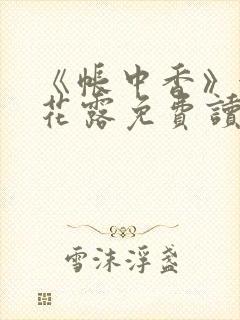 《帳中香》
花露免費讀
雪沫浮盞